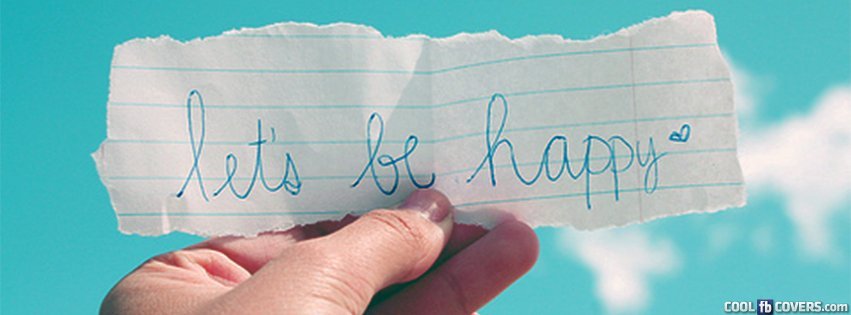 let's be happy
COOL fb COVERS.COM